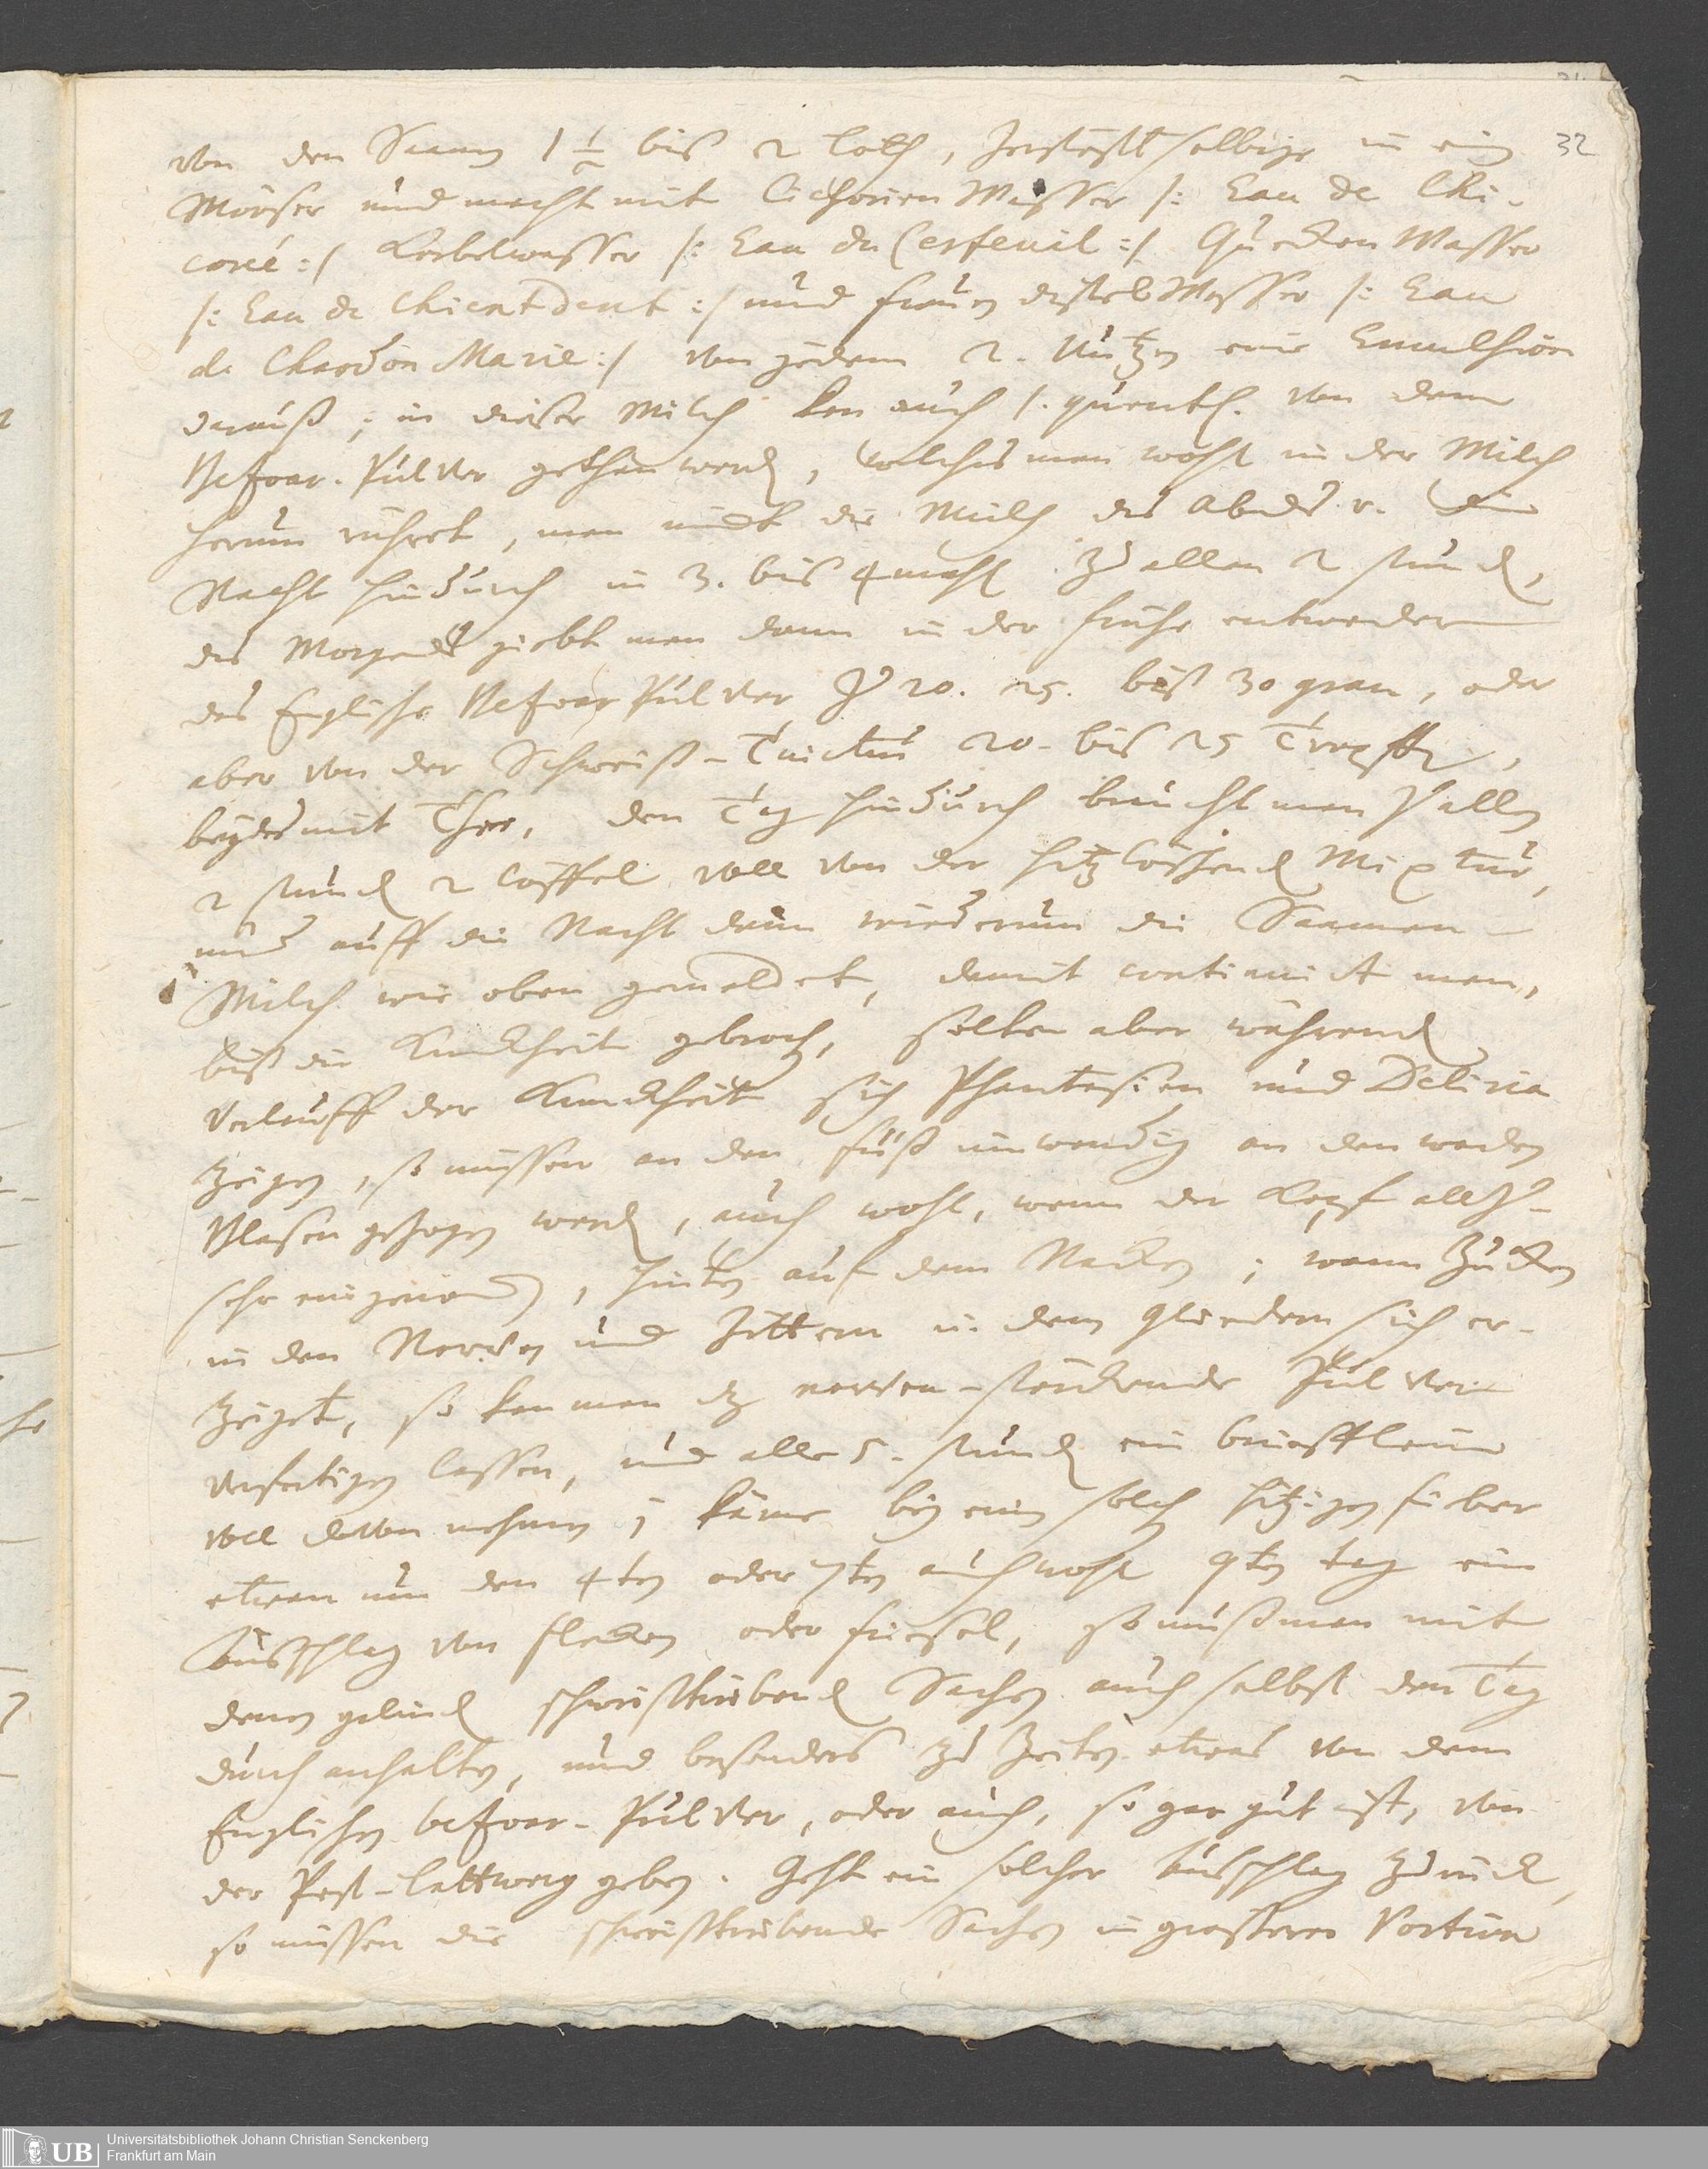 32
von den Saamen 1 1/2 bis 2 loth, zerstößt selbige in ein
Mörser und macht mit Cichorien Wasser /: Eau de Chi-
coré :/ Kerbelwasser /: Eau du Cerfeuil :/ Quecken Wasser
/: Eau de Chientdent :/ und frauen distel Wasser /: Eau
de Chardon Marie :/ von jedem 2. Untzen eine Emulsion
darauß; in dieser Milch kan auch 1. quentl. von dem
Bezoar-Pulver gethan werden, welches man wohl in der Milch
herum rühret, man nimbt die Milch des Abends u. die
Nacht hindurch in 3. bis 4 mahl zu allen 2 stunden,
des Morgends giebt man dann in der frühe entweder
das Englische Bezoar Pulver zu 20. 25. biß 30 gran, oder
aber von der Schweiß-Tinctur 20- bis 25 Tropffen,
beydes mit Thee, den Tag hindurch braucht man zu allen
2 stunden 2 löffel voll von der hitz löschenden Mixtur,
und auff die Nacht dann wiederum die Saamen-
Milch wie oben gemeldet, damit continuirt man,
biß die Kranckheit gebrochen, solten aber währenden
Verlauff der Kranckheit sich Phantasien und Deliria
zeigen, so müssen an den füß inwendig an den waden
Blasen gezogen werden, auch wohl, wenn der Kopf allzu-
sehr eingenommen, hinten auf dem Nacken; wann Zucken
in den Nerven und Zittern in den Gliedern sich er-
zeiget, so kan man das nerven-stärckende Pulver
verfertigen lassen, und alle 5. stunden ein brieffleine
voll davon nehmen; käme bey ein solch hitzigen fieber
etwan um den 4ten oder 7ten auch wohl 9ten tag ein
Ausschlag von flecken oder friesel, so muß man mit
denen gelinden schweißtreibenden Sachen auch selbst den Tag
durch anhalten, und besonders zu Zeiten etwas von dem
Englischen bezoar-Pulver, oder auch, so gar gut ist, von
der Pest-lattwerg geben. Geht ein solcher Ausschlag zurück,
so müssen die schweißtreibende Sachen in grösserer Portion
UB
Universitätsbibliothek Johann Christian Senckenberg
Frankfurt am Main